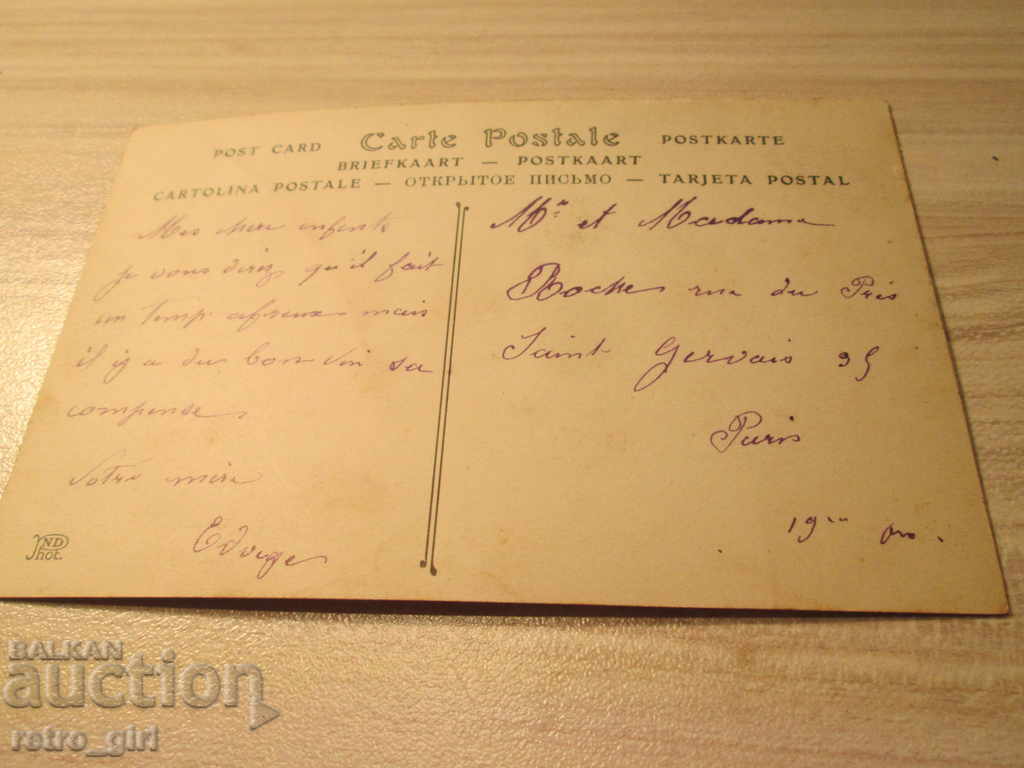 POST CARD Carte Postale POSTKARTE
BRIEFKAART — POSTKAART
CARTOLINA POSTALE — ОТКРЫТОЕ ПИСЬМО — TARJETA POSTAL
Mes cheri enfants
je vous direz qu'il fait
un temp afreux mais
il y a du bon vin sa
compense
Votre mère
Edvige
ND
Phot.
Mr et Madame
Roche rue du Prés
Saint Gervais 95
Paris
19
BALKAN
auction
retro_girl